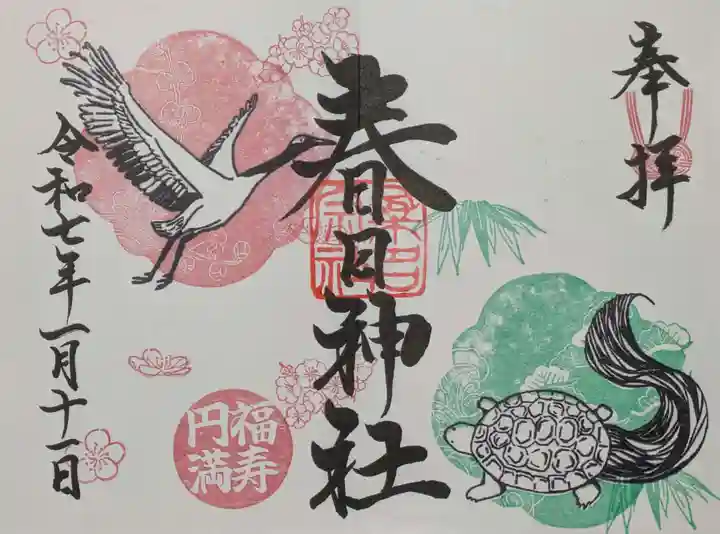 奉拝
春日神社
福寿
円満
令和七年一月十一日